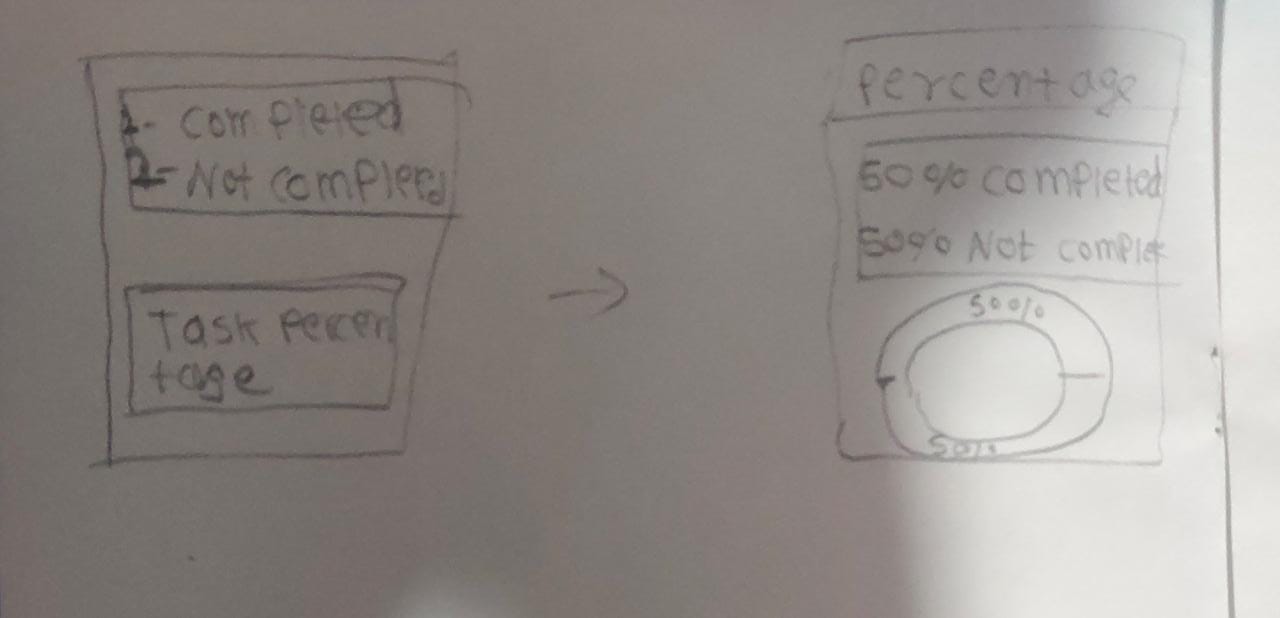 1- completed
2- Not compleed
Task percen
tage
percentage
50% completed
50% Not complet
50%
50%